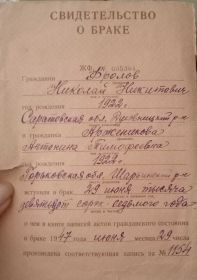 СВИДЕТЕЛЬСТВО
О БРАКЕ
ЖФ
Гражданин Фролов
Николай Никитович
год рождения 1922 г.
Саратовская обл. р-н
и гражданка Арженикова
Антонина Тимофеевна
год рождения 1924 г.
Горьковская обл. р-н
вступили в брак 29 июня тысяча
девятьсот сорок седьмого года
о чем в книге записей актов гражданского состояния
о браке 1947 года июня месяца 29 числа
произведена соответствующая запись за № 1154